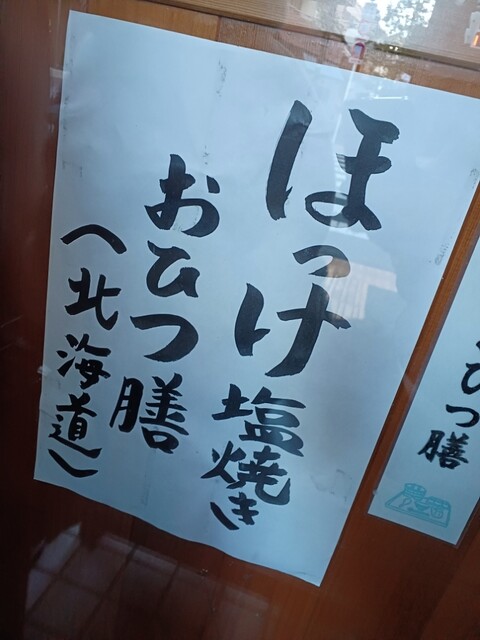 ほっけ塩焼き
おひつ膳
(北海道)
ひつ膳